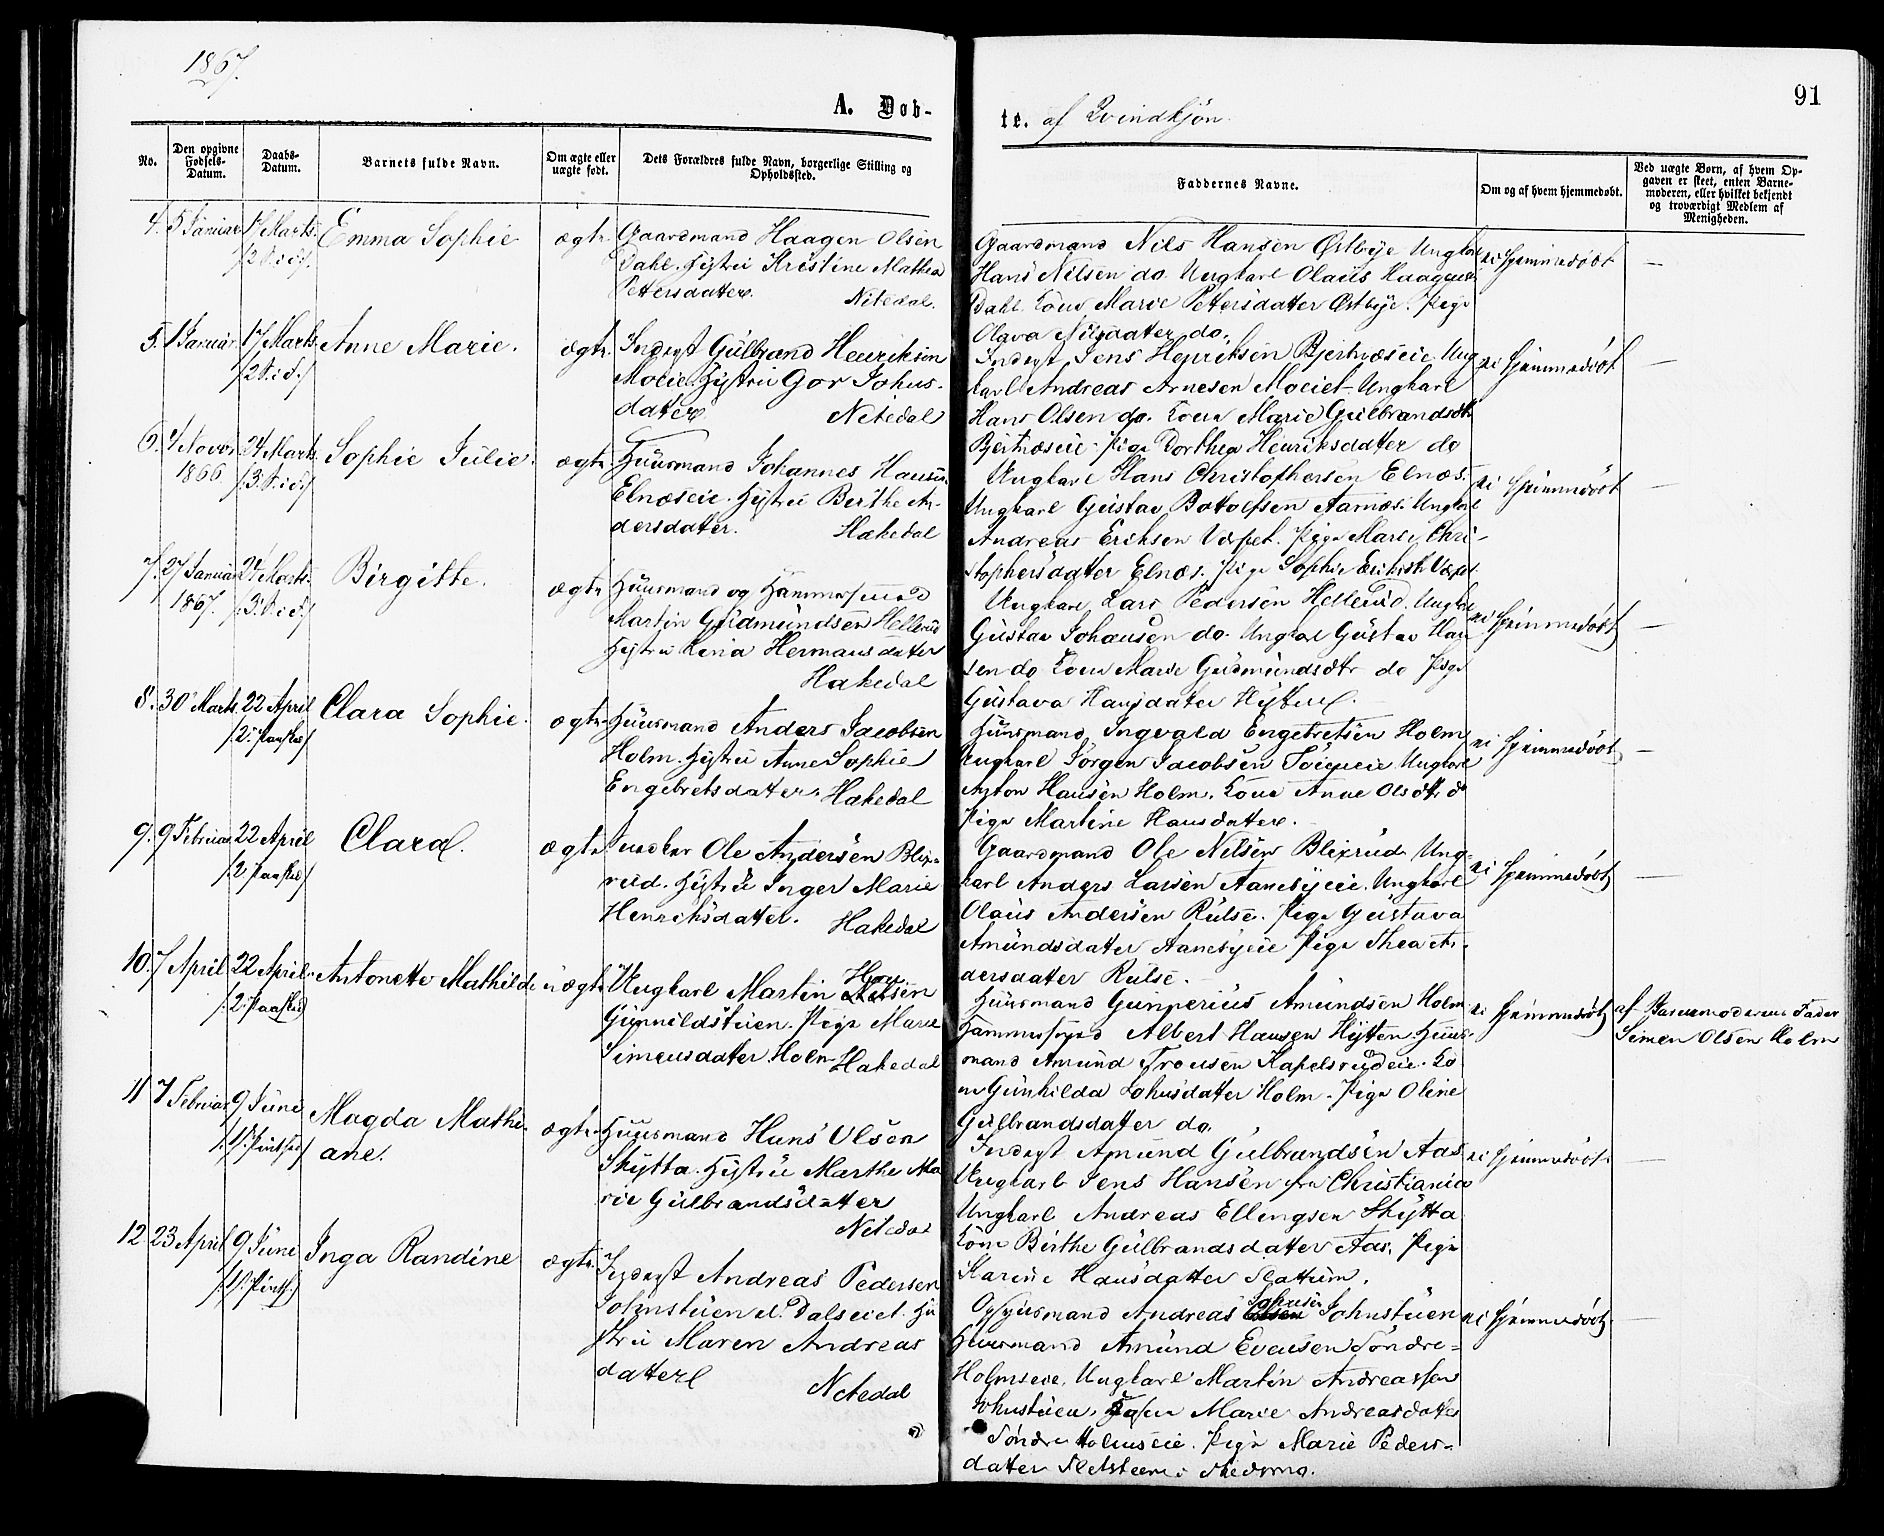 1867.
91
A. Døb-
te. af Qvindkjøn.
No.
Den opgivne Fødsels-Datum.
Daabs-Datum.
Barnets fulde Navn.
Om ægte eller uægte født.
Dets Forældres fulde Navn, borgerlige Stilling og Opholdssted.
Faddernes Navne.
Om og af hvem hjemmedøbt.
Ved uægte Børn, af hvem Op-
gaven er skeet, enten Barne-
moderen, eller hvilket bekjendt
og troværdigt Medlem af
Menigheden.
4. 5 Januar 17 Marts Emma Sophie ægte
/2 S. i F./
Gaardmand Haagen Olsen
Dahl. Hustru Kristine Mathea
Petersdatter. Nitedal.
Gaardmand Nils Hansen Østbye Ungkarl
Hans Nilsen do. Ungkarl Olaus Haagens.
Dahl. Kone Marie Petersdatter Østbye. Pige
Olava Nilsdatter do.
ei hjemmedøbt —
5. 1 Januar 17 Marts Anne Marie. ægte
/2 S. i F./
Inderst Gulbrand Henriksen
Moeie. Hustru Gor Johns-
datter Nitedal
Inderst Jens Henriksen Bjertnæseie. Ung-
karl Andreas Arnesen Moeiet. Ungkarl
Hans Olsen do. Kone Marie Gulbrandsdtr
Bjertnæseie. Pige Dorthea Henriksdatter do
ei hjemmedøbt —
6. 24 Marts Sophie Julie. ægte
1866. /3 S. i F./
Huusmand Johannes Hansen
Elnæseie. Hustru Berthe An-
dersdatter. Hakedal
Ungkarl Hans Christophersen Elnæs.
Ungkarl Gustav Botolfsen Aarnæs. Ungkarl
Andreas Eriksen Værpet. Pige Marie Chri-
stophersdatter Elnæs. Pige Sophie Eriksdtr Værpet
ei hjemmedøbt —
7. 27 Januar 24 Marts. Birgitte. ægte
1867. /3 S. i F./
Huusmand og Hammersmed
Martin Gudmundsen Hellerud
Hustru Lina Hermansdatter
Hakedal
Ungkarl Lars Pedersen Hellerud. Ungkarl
Gustav Johansen do. Ungkarl Gustav Han-
sen do. Kone Marie Gudmundsdtr do Pige
Gustava Hansdatter Hytten.
ei hjemmedøbt —
8. 30 Marts 22 April Clara Sophie. ægte
/2. Paaske/
Huusmand Anders Jacobsen
Holm. Hustru Anne Sophie
Engebretsdatter. Hakedal
Huusmand Ingvald Engebretsen Holm
Ungkarl Jørgen Jacobsen Ungkarl
Anton Hansen Holm. Kone Anne Olsdtr do
Pige Martine Hansdatter.
ei hjemmedøbt —
9. 9 Februar 22 April Clara. ægte
/2 Paaske/
Snedker Ole Andersen Blix-
rud. Hustru Inger Marie
Henriksdatter. Hakedal
Gaardmand Ole Nilsen Blixrud. Ung-
karl Anders Larsen Aanesyeie. Ungkarl
Olaus Andersen Rulse. Pige Gustava
Amundsdatter Aanesyeie Pige Thea An-
dersdatter Rulse.
ei hjemmedøbt —
10. 7 April 22 April. Antonette Mathilde uægte
/2. Paaske/
Ungkarl Martin Hansen
Gunnildstuen. Pige Marie
Simensdatter Holm. Hakedal
Huusmand Gunnerius Amundsen Holm.
Hammersmed Albert Hansen Hytten. Huus-
mand Amund Tronsen Kapelsrudeie. Ko-
ne Gunhilda Johnsdatter Holm. Pige Oline
Gulbrandsdatter do.
ei hjemmedøbt
af Barnemoderens Fader
Simen Olsen Holm
11 7 Februar 9 Juni Magda Mathi-
ane. ægte
/1. Pintse/
Huusmand Hans Olsen
Skytta. Hustru Marthe Ma-
rie Gulbrandsdatter
Nitedal
Inderst Amund Gulbrandsen Aas
Ungkarl Jens Hansen fra Christiania
Ungkarl Andreas Ellingsen Skytta
Kone Birthe Gulbrandsdatter Aas. Pige
Karine Hansdatter Slattum.
ei hjemmedøbt. —
12 23 April 9 Juni Inga Randine ægte
/1. Pints./
Inderst Andreas Pedersen
Johnstuen Dalseiet. Hu-
stru Maren Andreas
datter Nitedal
Huusmand Andreas Johnsen Johnstuen
Huusmand Amund Evensen Søndre-
Holmseie. Ungkarl Martin Andreassen
Johnstuen. Kone Marie Andreasdatter
Søndre Holmseie. Pige Marie Peders-
datter i Skedsmo.
ei hjemmedøbt. —